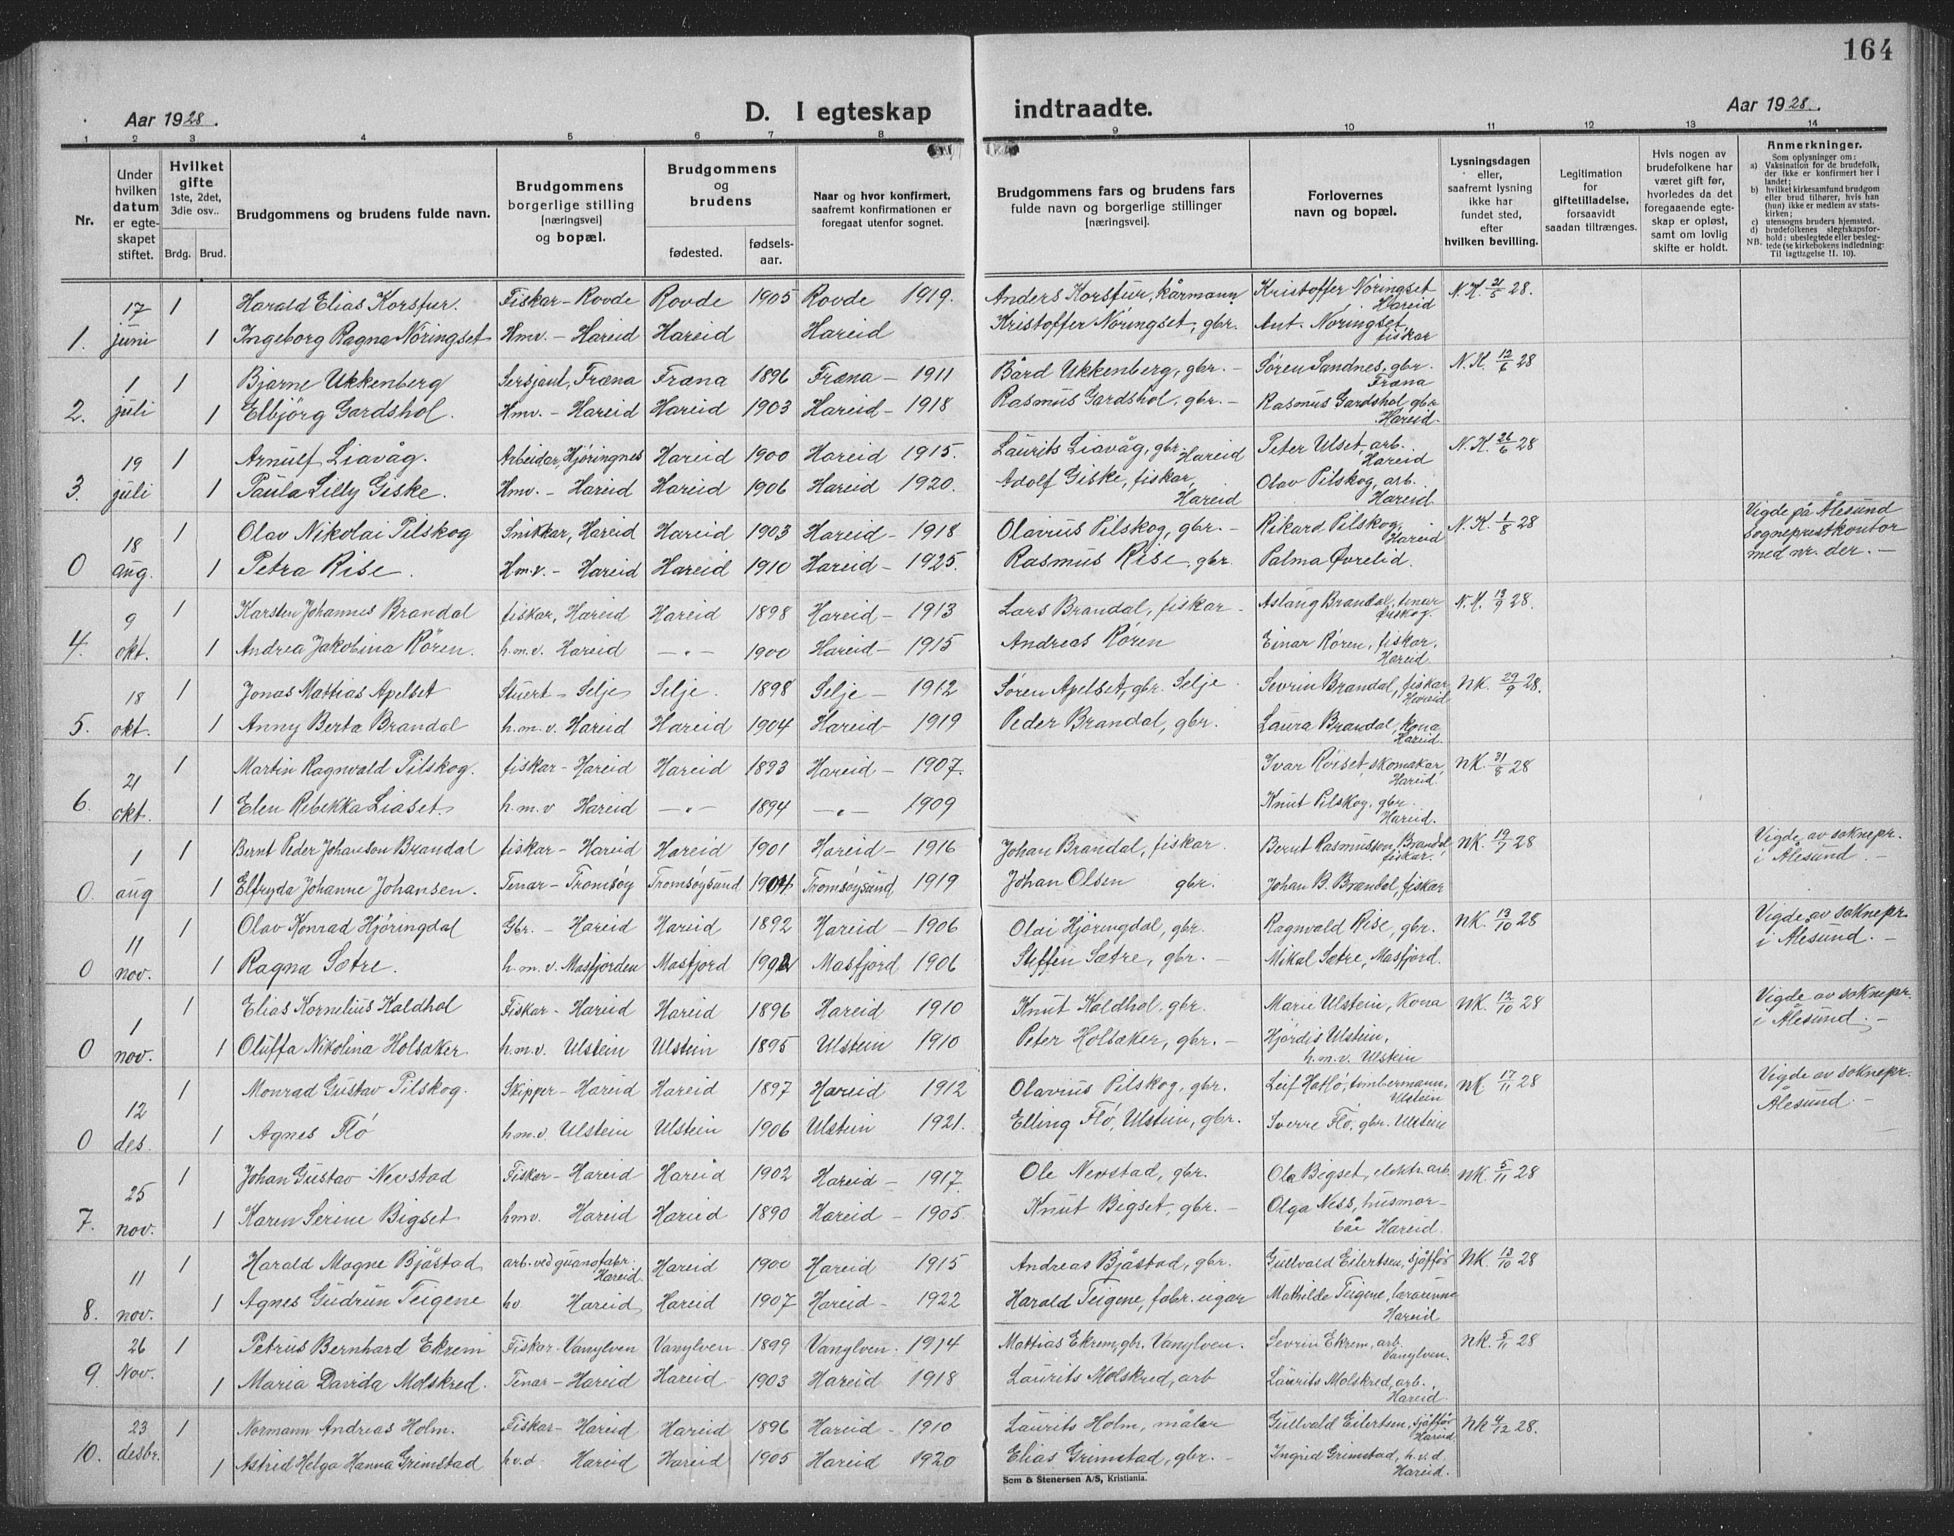 164
Aar 1928.
D. I egteskap indtraadte.
Aar 1928.
1 2 3 4 5 6 7 8 9 10 11 12 13 14
Nr.
Under hvilken datum er egteskapet stiftet.
Hvilket gifte 1ste, 2det, 3die osv.. Brdg. Brud.
Brudgommens og brudens fulde navn.
Brudgommens borgerlige stilling [næringsvei] og bopæl.
Brudgommens og brudens fødested. fødsels-aar.
Naar og hvor konfirmert, saafremt konfirmationen er foregaat utenfor sognet.
Brudgommens fars og brudens fars fulde navn og borgerlige stillinger [næringsvei].
Forlovernes navn og bopæl.
Lysningsdagen eller, saafremt lysning ikke har fundet sted, efter hvilken bevilling.
Legitimation for giftetilladelse, forsaavidt saadan tiltrænges.
Hvis nogen av brudefolkene har været gift før, hvorledes da det foregaaende egteskap er opløst, samt om lovlig skifte er holdt.
Anmerkninger.
Som oplysninger om:
a) Vaksination for de brudefolk, der ikke er konfirmert her i landet;
b) hvilket kirkesamfund brudgom eller brud tilhører, hvis han (hun) ikke er medlem av statskirken;
c) utensogns bruders hjemsted.
d) brudefolkenes slegtskapsforhold: ubeslegtede eller beslegtede (se kirkebokens indledning: Til iagttagelse II. 10).
NB.
17 1 Harald Elias Korsfur. Fiskar - Rovde Rovde 1905 Rovde 1919. Anders Korsfur, kårmann Kristoffer Nöringset Hareid N.K. 21/5 28.
1. juni 1 Ingeborg Ragna Nöringset Hmv. - Hareid Hareid Hareid Kristoffer Nöringset, gbr. Ant. Noringset, fiskar
1 1 Bjarne Ukkenberg Sersjant, Fræna Fræna 1896 Fræna - 1911 Bård Ukkenberg, gbr. - Søren Sandnes, gbr. Fræna N.K. 12/6 28
2. juli 1 Elbjörg Gardshol. Hmv. - Hareid Hareid 1903 Hareid - 1918 Rasmus Gardshol, gbr. - Rasmus Gardshol gbr Hareid.
19 1 Arnulf Liavåg. Arbeidar, Hjöringnes Hareid 1900 Hareid 1915. Laurits Liavåg, gbr. Hareid Peter Ulset, arb. Hareid N.K. 26/6 28
3. juli 1 Paula Lilly Giske. Hmv. - Hareid Hareid 1906 Hareid 1920. Adolf Giske, fiskar, Hareid Olav Pilskog, arb. Hareid.
18 1 Olav Nikolai Pilskog Snikkar, Hareid Hareid 1903 Hareid - 1918 Olavus Pilskog, gbr. - Rikard Pilskog, Hareid N.K. 1/8 28 Vigde på Ålesund sogneprestkontor med nr. der. -
0 aug. 1 Petra Rise. Hm.v. - Hareid Hareid 1910 Hareid - 1925. Rasmus Rise, gbr. Palma Øvrelid.
9 1 Karsten Johannes Brandal fiskar, Hareid Hareid 1898 Hareid - 1913 Lars Brandal, fiskar - Aslaug Brandal, tenar N.K. 13/9 28.
4. okt. 1 Andrea Jakobina Røren. h.m.v. Hareid - " - 1900 Hareid - 1915 Andreas Røren Einar Røren, fiskar, Hareid
18 1 Jonas Mattias Apelset Stuert - Selje Selje. 1898 Selje - 1912 Søren Apelset, gbr. Selje Sevrin Brandal, fiskar Hareid NK. 29/9 28.
5. okt. 1 Anny Berta Brandal h.m.v. Hareid Hareid 1904 Hareid - 1919 Peder Brandal, gbr. Laura Brandal, kona Hareid.
21 1 Martin Ragnvald Pilskog. fiskar - Hareid Hareid 1893 Hareid - 1907. Ivar Röiset, skomakar, Hareid. NK. 31/8 28
6. okt. 1 Elen Rebekka Liaset. h.m.v Hareid - " - 1894 - " - 1909 Knut Pilskog, gbr. Hareid.
1 1 Bernt Peder Johanson Brandal fiskar - Hareid Hareid 1901 Hareid - 1916 Johan Brandal, fiskar. Bernt Rasmusson, Brandal, fiskar. NK. 19/7 28 Vigde av soknepr. i Ålesund. -
0. aug 1 Elfryda Johanne Johansen. Tenar - Tromsøy Tromsøysund 1904 Tromsøysund 1919 Johan Olsen gbr. Johan B. Brandal, fiskar
11 1 Olav Konrad Hjöringdal Gbr. - Hareid Hareid 1892 Hareid - 1906 Olai Hjöringdal, gbr. Ragnvald Rise, gbr. NK. 13/10 28 Vigde av soknepr. i Ålesund. -
0 nov. 1 Ragna Sætre. h.m.v. Masfjorden Masfjord Masfjord 1906 Steffen Sætre, gbr. - Mikal Sætre, Masfjord.
1 1 Elias Kornelius Kaldhol Fiskar - Hareid Hareid 1896 Hareid 1910 Knut Kaldhol, gbr. Marie Ulstein, Kona NK. 12/10 28 Vigde av soknepr. i Ålesund. -
0 nov. 1 Oluffa Nikolina Holsaker. h.m.v. Ulstein Ulstein 1895 Ulstein 1910 Peter Holsaker, gbr. - Hjördis Ulstein, h.m.v. Ulstein
12 1 Monrad Gustav Pilskog. Skipper - Hareid Hareid 1897 Hareid 1912 Olavus Pilskog, gbr. Leif Hatlö, timbermann, Ulstein NK. 17/11 28 Vigde av soknepr. Ålesund. -
0 des. 1 Agnes Flö h.m.v Ulstein Ulstein 1906 Ulstein 1921. Elling Flö, Ulstein, gbr. Sverre Flö, gbr. Ulstein
25 1 Johan Gustav Nevstad Fiskar - Hareid Hareid 1902 Hareid - 1917. Ole Nevstad, gbr. Ola Bigset, elektr. arb. NK. 5/11 28
7. nov. 1 Karen Serine Bigset hmv. Hareid Hareid 1890 Hareid - 1905. Knut Bigset, gbr. - Olga Ness, husmor - Hareid.
11 1 Harald Mogne Bjåstad arb. ved guanofabr. Hareid Hareid 1900 Hareid 1915 Andreas Bjåstad, gbr. Gullvald Eilertsen, sjåffør NK. 13/10 28
8. nov. 1 Agnes Gudrun Teigene hv Hareid Hareid 1907 Hareid - 1922 Harald Teigene, fabr. eigar Mathilde Teigene, lærarinne Hareid
26 1 Petrus Bernhard Ekrem Fiskar - Vanylven Vanylven 1899 Vanylven. 1914 Mattias Ekrem, gbr. Vanylven. Sevrin Ekrem, arb. Vanylven. NK. 5/11 28
9 Nov. 1 Maria Davida Molskred. Tenar - Hareid Hareid 1903 Hareid 1918 Laurits Molskred, arb Laurits Molskred, arb. Hareid.
23 1 Normann Andreas Holm. Fiskar - Hareid Hareid 1896 Hareid - 1910 Laurits Holm, måler Gullvald Eilertsen, sjåffør Hareid NK 28.
10. desbr. 1 Astrid Helga Hanna Grimstad hv.d Hareid Hareid 1905 Hareid 1920 Elias Grimstad, gbr. - Ingrid Grimstad, h.v.d, Hareid.
Sem & Stenersen A/S, Kristiania.